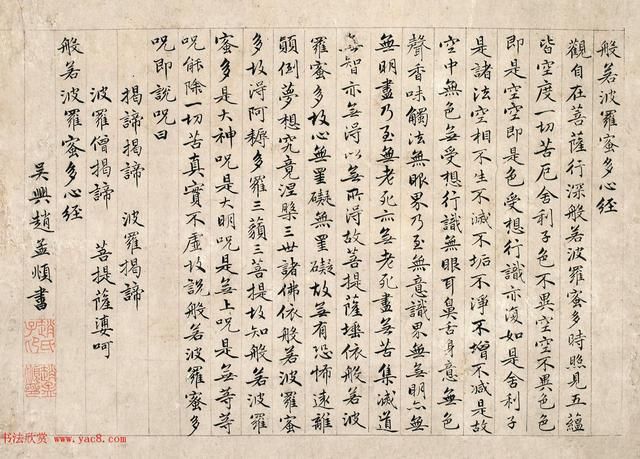 般若波羅蜜多心經
觀自在菩薩行深般若波羅蜜多時照見五蘊
皆空度一切苦厄舍利子色不異空空不異色色
即是空空即是色受想行識亦復如是舍利子
是諸法空相不生不滅不垢不淨不增不減是故
空中無色無受想行識無眼耳鼻舌身意無色
聲香味觸法無眼界乃至無意識界無無明亦無
無明盡乃至無老死亦無老死盡無苦集滅道
無智亦無得以無所得故菩提薩埵依般若波
羅蜜多故心無罣礙無罣礙故無有恐怖遠離
顛倒夢想究竟涅槃三世諸佛依般若波羅蜜
多故得阿耨多羅三藐三菩提故知般若波羅
蜜多是大神呪是大明呪是無上呪是無等等
呪能除一切苦真實不虛故說般若波羅蜜多
呪即說呪曰
揭諦揭諦 波羅揭諦
波羅僧揭諦 菩提薩婆呵
般若波羅蜜多心經
吳興趙孟頫書
趙氏子昂
书法欣赏 www.yac8.com